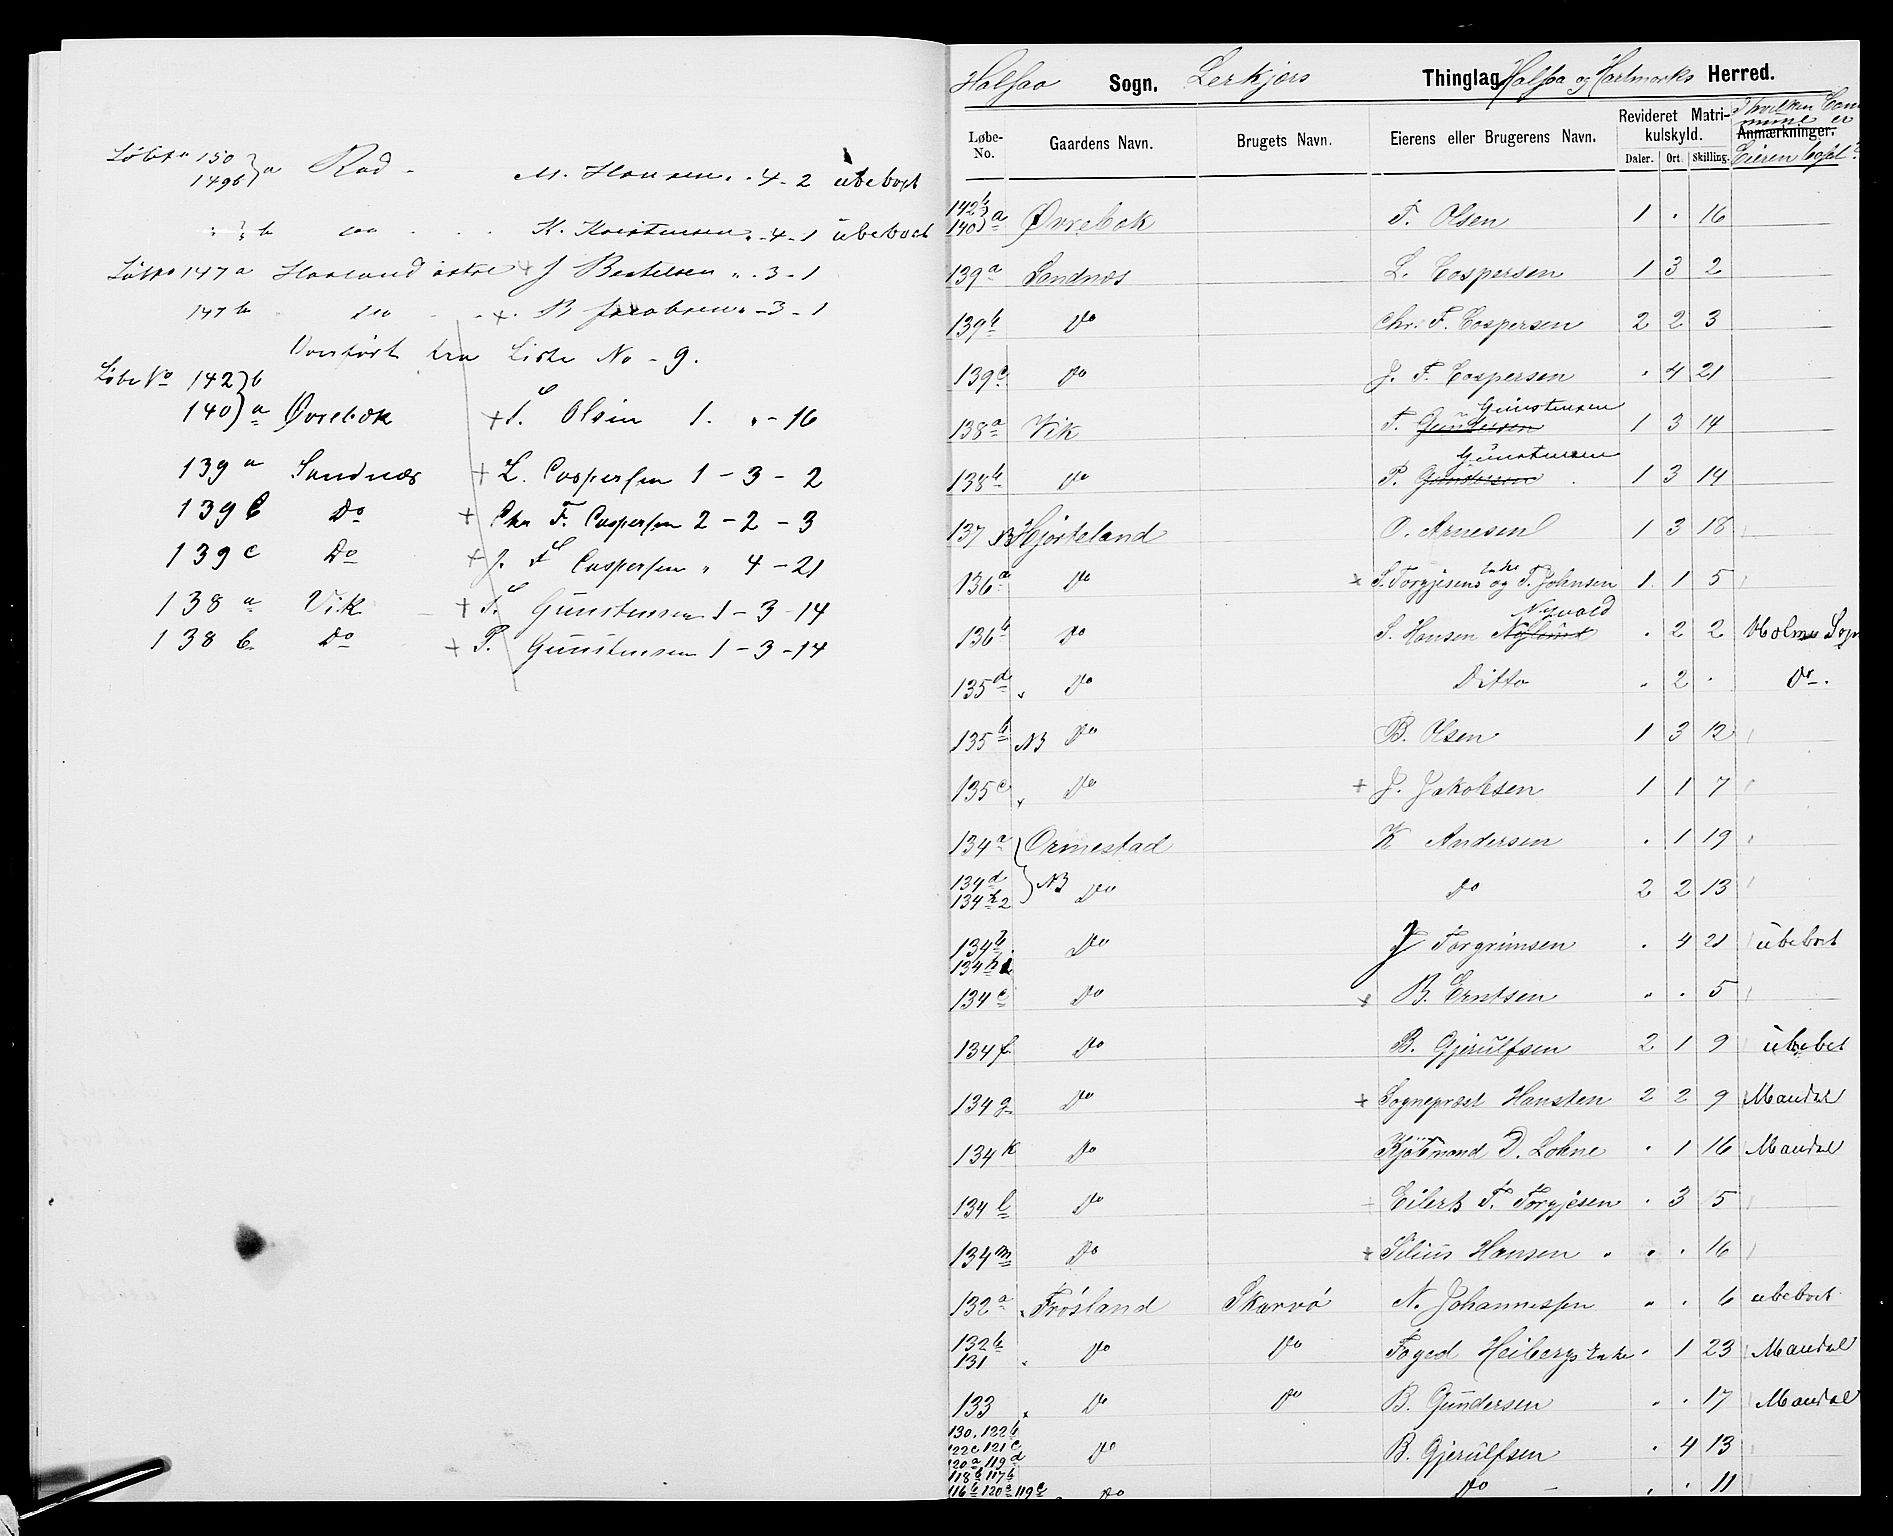 Løbno 150 } a Rød - M. Hansen " - 4 - 2 ubeboet
149b
" } b do - - - K. Kristensen " - 4 - 1 ubeboet
Løbno 147 a Haaland østre + J Bertelsen " - 3 - 1
147 b do - - + B Jacobsen " - 3 - 1
Overført fra Liste No - 9.
Løbe No 142 } b
140 } a Øvrebøk + T. Olsen 1. " - 16
139 a Sandnæs + L. Caspersen 1 - 3 - 2
139 b Do + Chr F. Caspersen 2 - 2 - 3
139 c Do + J. F. Caspersen " 4 - 21
138 a Vik + T. Gunstensen 1 - 3 - 14
138 b. Do + P. Gunstensen 1 - 3 - 14
Halsaa Sogn. Lerkjærs Thinglag Halsaa og Hartmarks Herred.
Løbe-No. Gaardens Navn. Brugets Navn. Eierens eller Brugerens Navn. Revideret Matrikulskyld. Anmærkninger.
Daler. Ort. Skilling.
I hvilken Commune er Eieren bosat?
142b 140 a Øvrebøk T. Olsen 1 " 16
139a Sandnæs L. Caspersen 1 3 2
139b Do Chr. F. Caspersen 2 2 3
139c Do J. F. Caspersen " 4 21
Gunstensen
138a Vik T. Gundersen 1 3 14
Gunstensen
138b Do P. Gundersen 1 3 14
137 NB Hjorteland O. Arnesen 1 3 18
136a Do × S. Torgjesens Enke og T. Johnsen 1 1 5
Nyvold
136b Do S. Hansen 2 2 Holme Sogn
135d Do Ditto " 2 " Do
135b NB Do B. Olsen 1 3 12
135c Do + J. Jakobsen 1 1 7
134a Ormestad K Andersen " 1 19
134d 134h2 } NB Do Do 2 2 13
134b 134h1 Do J Torgrimsen " 4 21 ubeboet
134e Do × B. Erntsen " " 5
134f Do B. Gjerulfsen 2 1 9 ubebet
134g Do + Sognepræst Hansten 2 2 9 Mandal
134k Do Kjøbmand D. Lohne " 1 16 Mandal
134l Do + Eilert T. Torgjesen " 3 5
134m Do + Silius Hansen " " 16
132a Frøsland Skarvø N. Johannessen " " 6 ubeboet
132b 131 Do Do Foged Heibergs Enke " 1 23 Mandal
133 Do Do B. Gundersen " " 17 Mandal
130. 122b 122c 121c 120a 119d 118b 117b Do B. Gjerulfsen " 4 13
116b 120c 119c Do Do " " 11